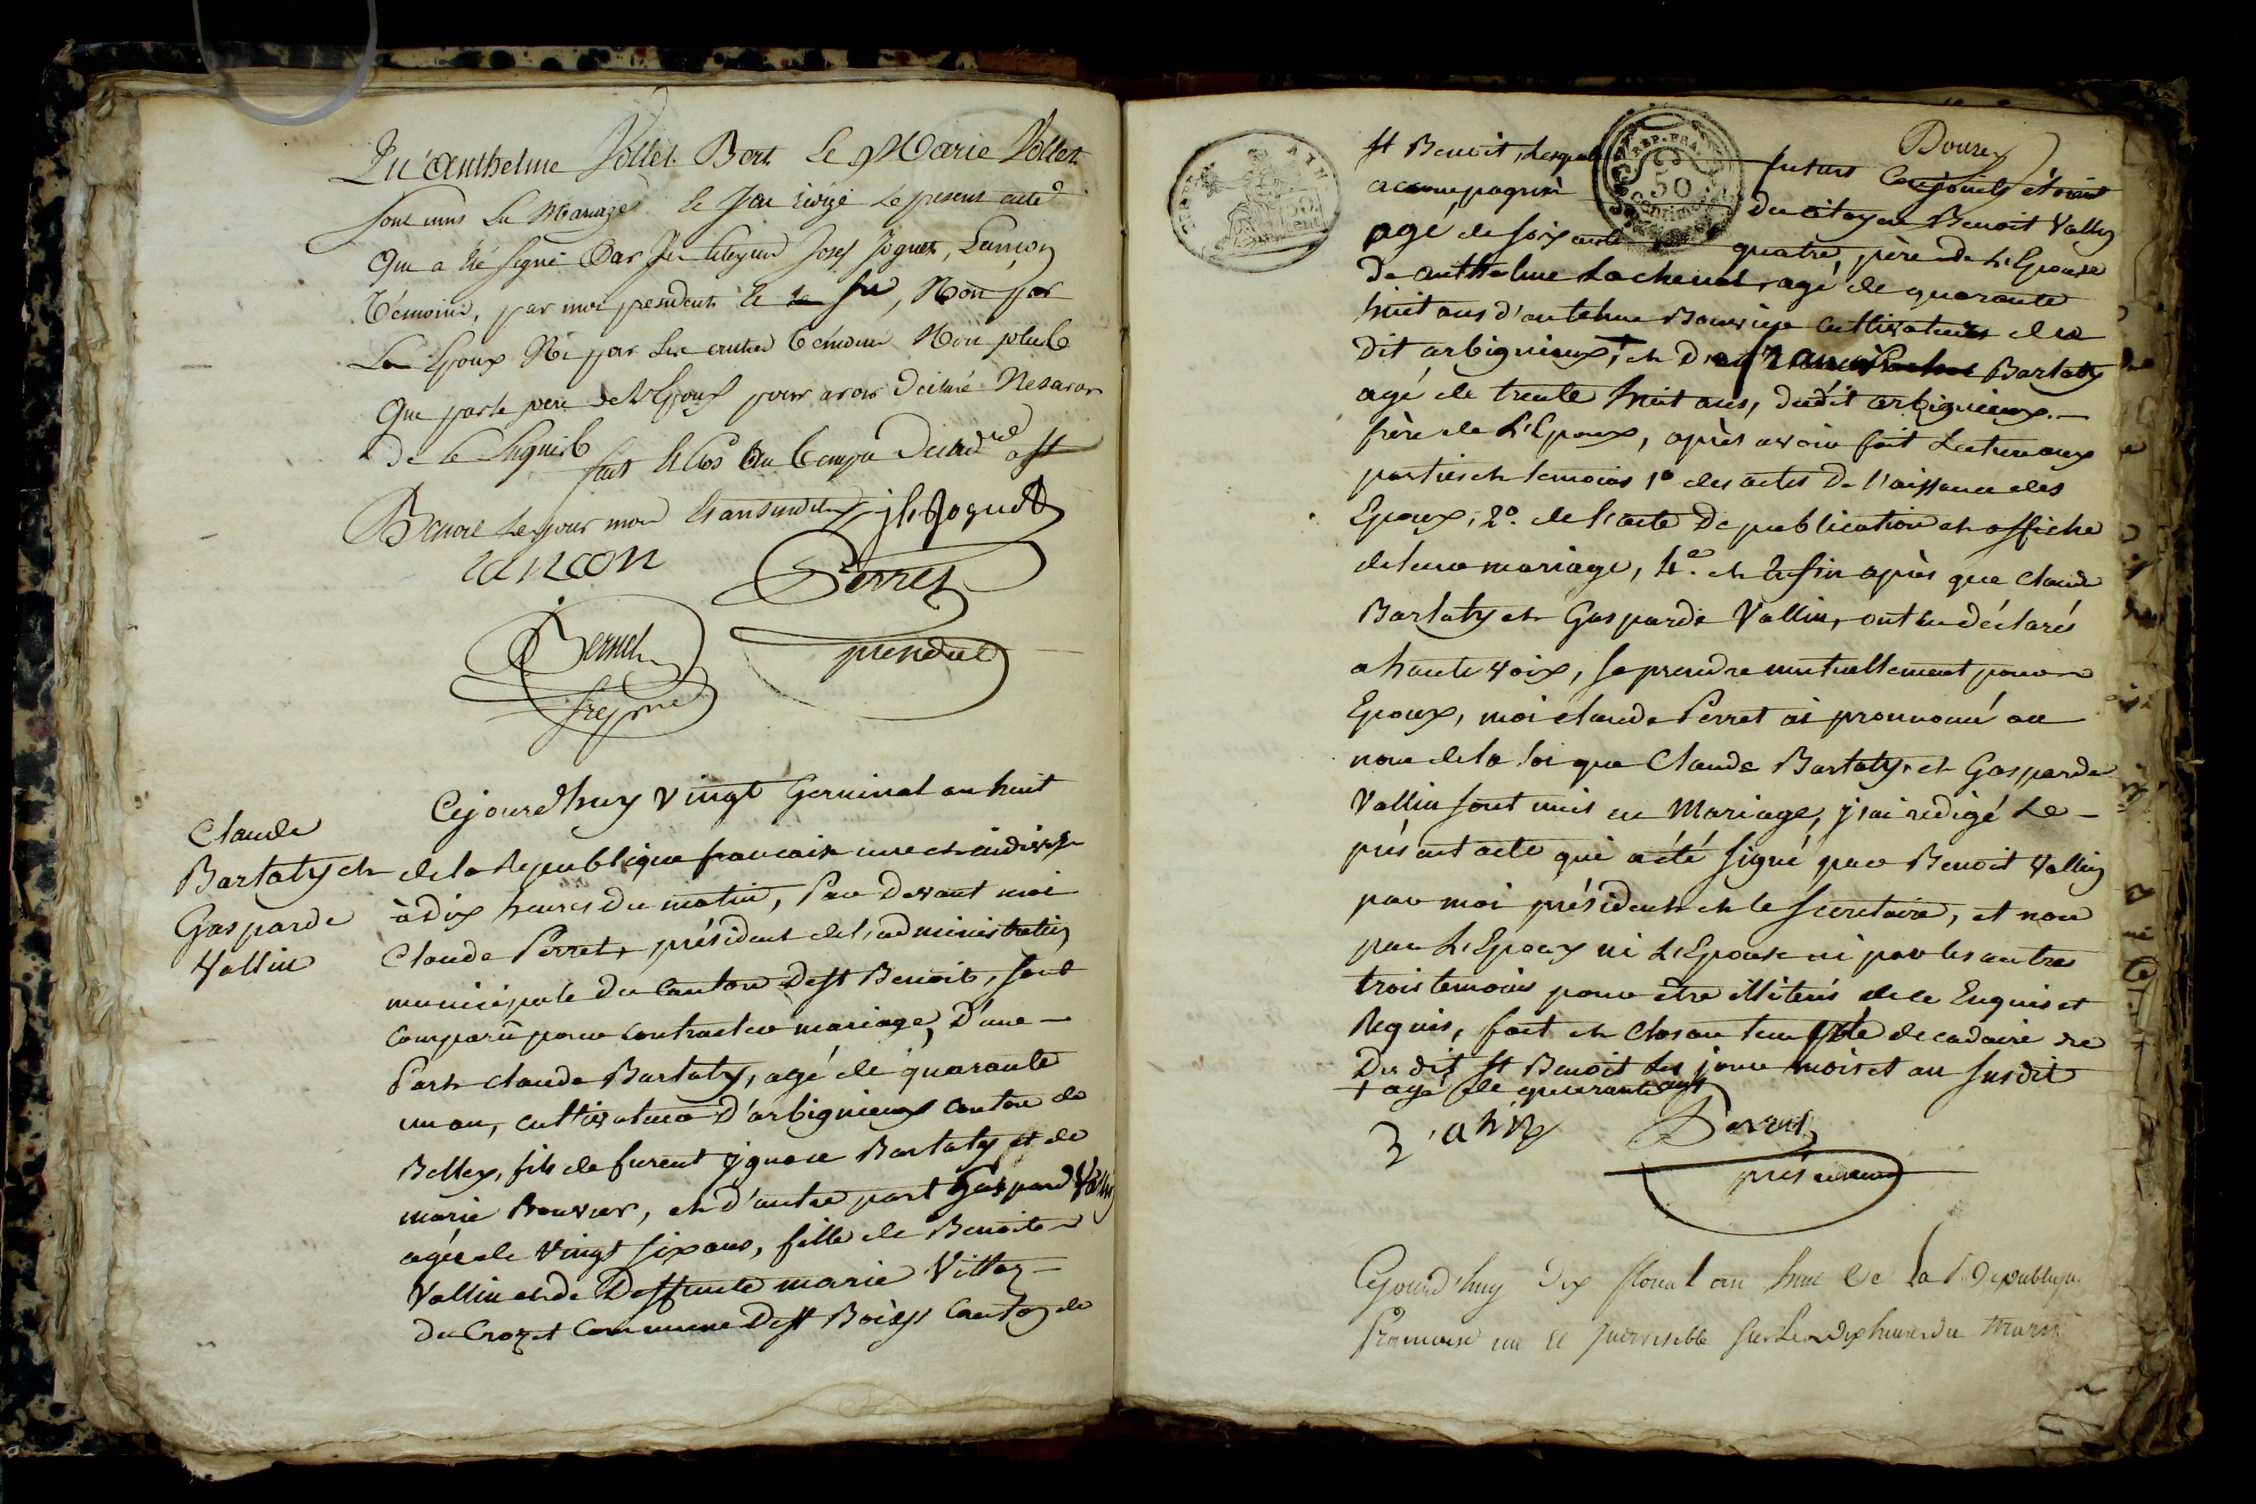 Qu'anthelme Jollet Bort & Marie Jollet
sont unis En Mariage Et J'ai rédigé Le present acte
Qui a été signé Par Les Citoyens Josep Joguet, Lançon
Témoins, par moi president Et Le sre, Non par
Les Epoux Ni par Les autres témoins Non plus
Que par le pere de L'Epoux pour avoir Déclaré Ne savoir
de ce Enquis
fait & Clos Au temple Décadre a St
Benoit Les jour mois Et an susdits
j h Joguet
Lancon
Perret
président
Claude
Bartaty et
Gasparde
Vallin
Cejourd'huy Vingt Germinal an huit
de la Republique francaise une et indivisible
à Dix heures du matin, Par Devant moi
Claude Perret, président de l'administration
municipale du Canton De St Benoit, sont
comparû pour contracter mariage, D'une
Part Claude Bartaty, agé de quarante
un an, cultivateur D'arbignieux Canton de
Belley, fils de furent ygnace Bartaty et de
marie Bouvier, et D'autre part Gaspard Vallin
agée de Vingt six ans, fille de Benoit
Vallin et de Deffunte marie Vittoz
Du Crozet Commune De St Bois Canton de
REP. FRA.
50
centimes
St Benoit, Lesquels futurs Conjoints étoient
accompagnés du citoyen Benoit Vallin
agé de soixante quatre, père de L'Epouse
De anthelme Lachenal, agé de quarante
huit ans d'antelme Bouvier cultivateurs du
dit arbignieux, + et De francois Bartaty
agé de trente huit ans, dudit arbignieux.
frère de L'Epoux, après avoir fait Lecture aux
parties et temoins 1o des actes De Naissance des
Epoux, 2o. de l'acte De publication et affiche
de leur mariage, 4o. et Enfin après que Claude
Bartaty et Gasparde Vallin, ont eu déclarés
a haute voix, se prendre mutuellement pour
Epoux, moi claude Perret ai prononcé au
nom de la Loi que Claude Bartaty et Gasparde
Vallin sont unis en Mariage, j'ai redigé Le
présent acte qui a été signé par Benoit Vallin
par moi président et le secretaire, et non
par L'Epoux ni L'Epouse ni par les autres
trois temoins pour être illiterés de ce Enquis et
Requis, fait et clos au temple decadaire
Du dit St Benoit Les jour mois et an susdit
+ agé de quarante ans
Perret
président
Cejourd'huy dix floréal an huit De La Republique
Francaise une Et Indivisible sur Les dix heures du Matin